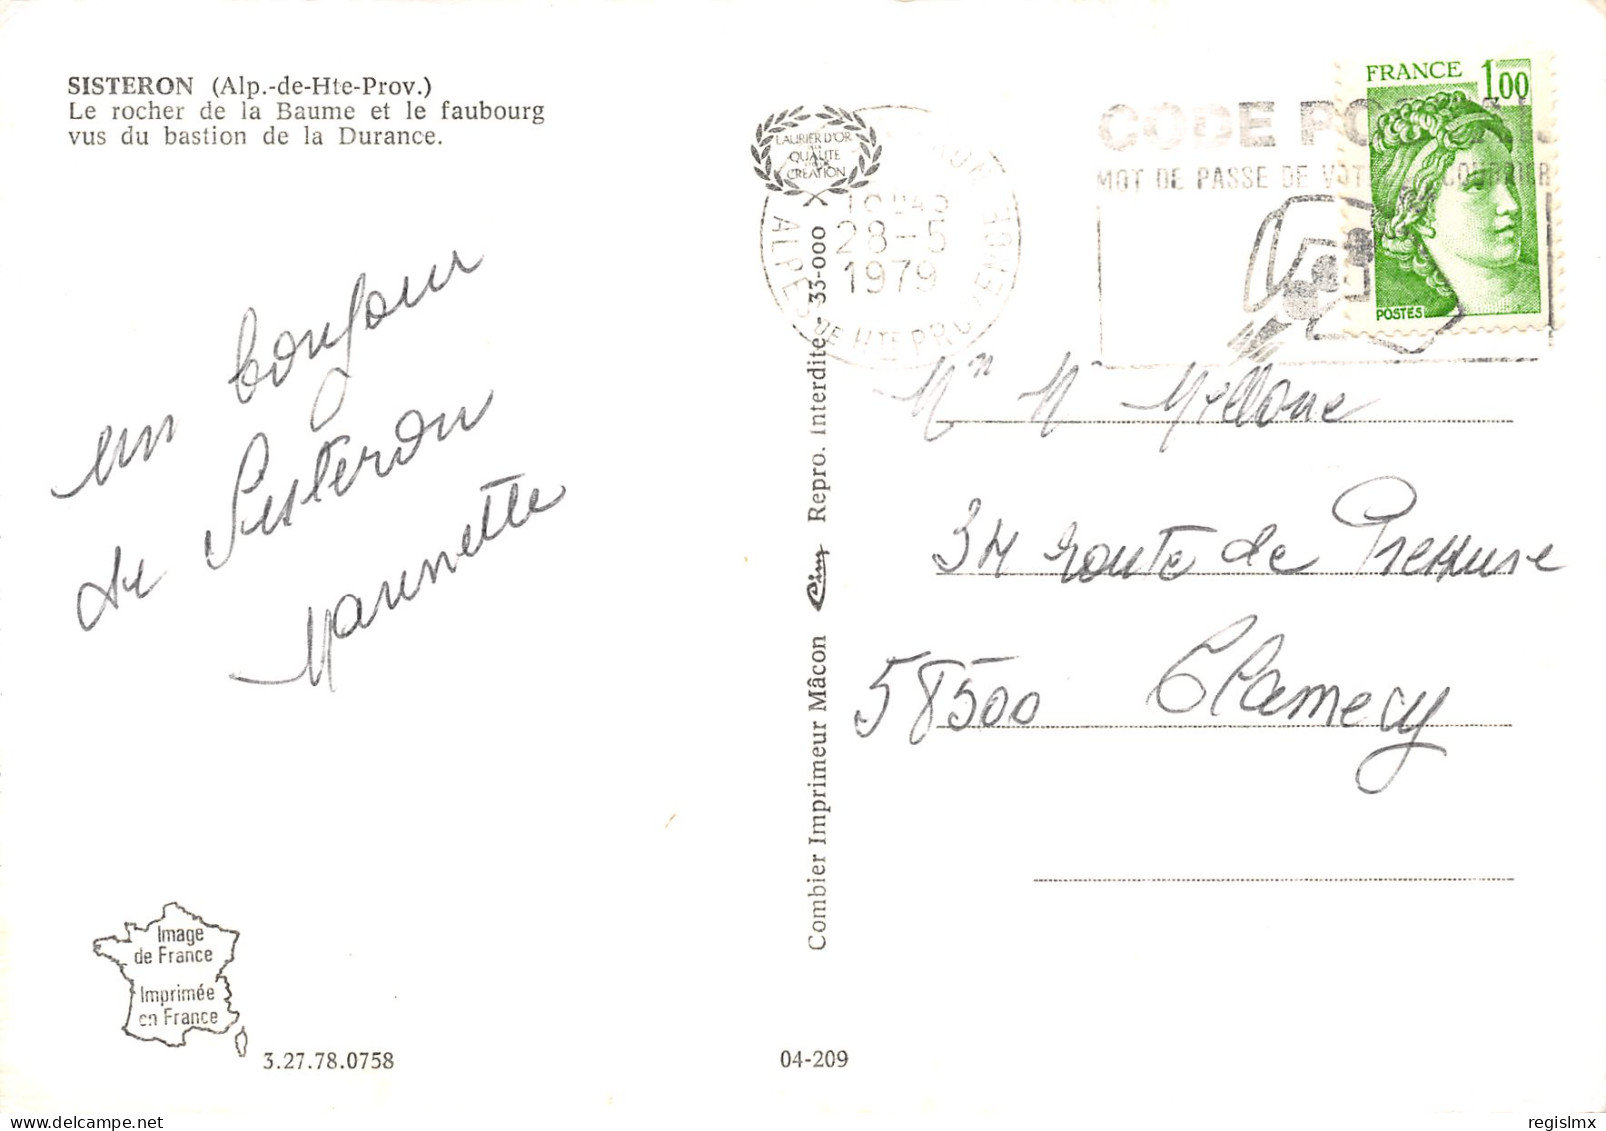 SISTERON (Alp.-de-Hte-Prov.)
Le rocher de la Baume et le faubourg
vus du bastion de la Durance.
un bonjour
de Sisteron
Maunette
Image
de France
Imprimée
en France
3.27.78.0758
04-209
Combier Imprimeur Mâcon Cim Repro. Interdite - 33-000
LAURIER D'OR
QUALITE
CREATION
28-5
1979
ALPES DE HTE PROVENCE
CODE
MOT DE PASSE DE COURRIER
FRANCE 1,00
POSTES
34 route de Pressure
58500 Clamecy
regislmx